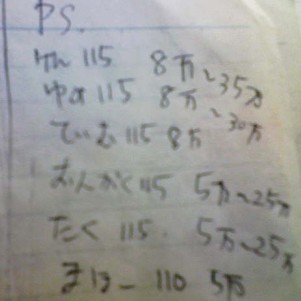 PS.
けん 115 8万~35万
ゆめ 115 8万~30万
ていむ 115 8万
むんがく 115 5万~25万
たく 115. 5万~25万
まほー 110 5万